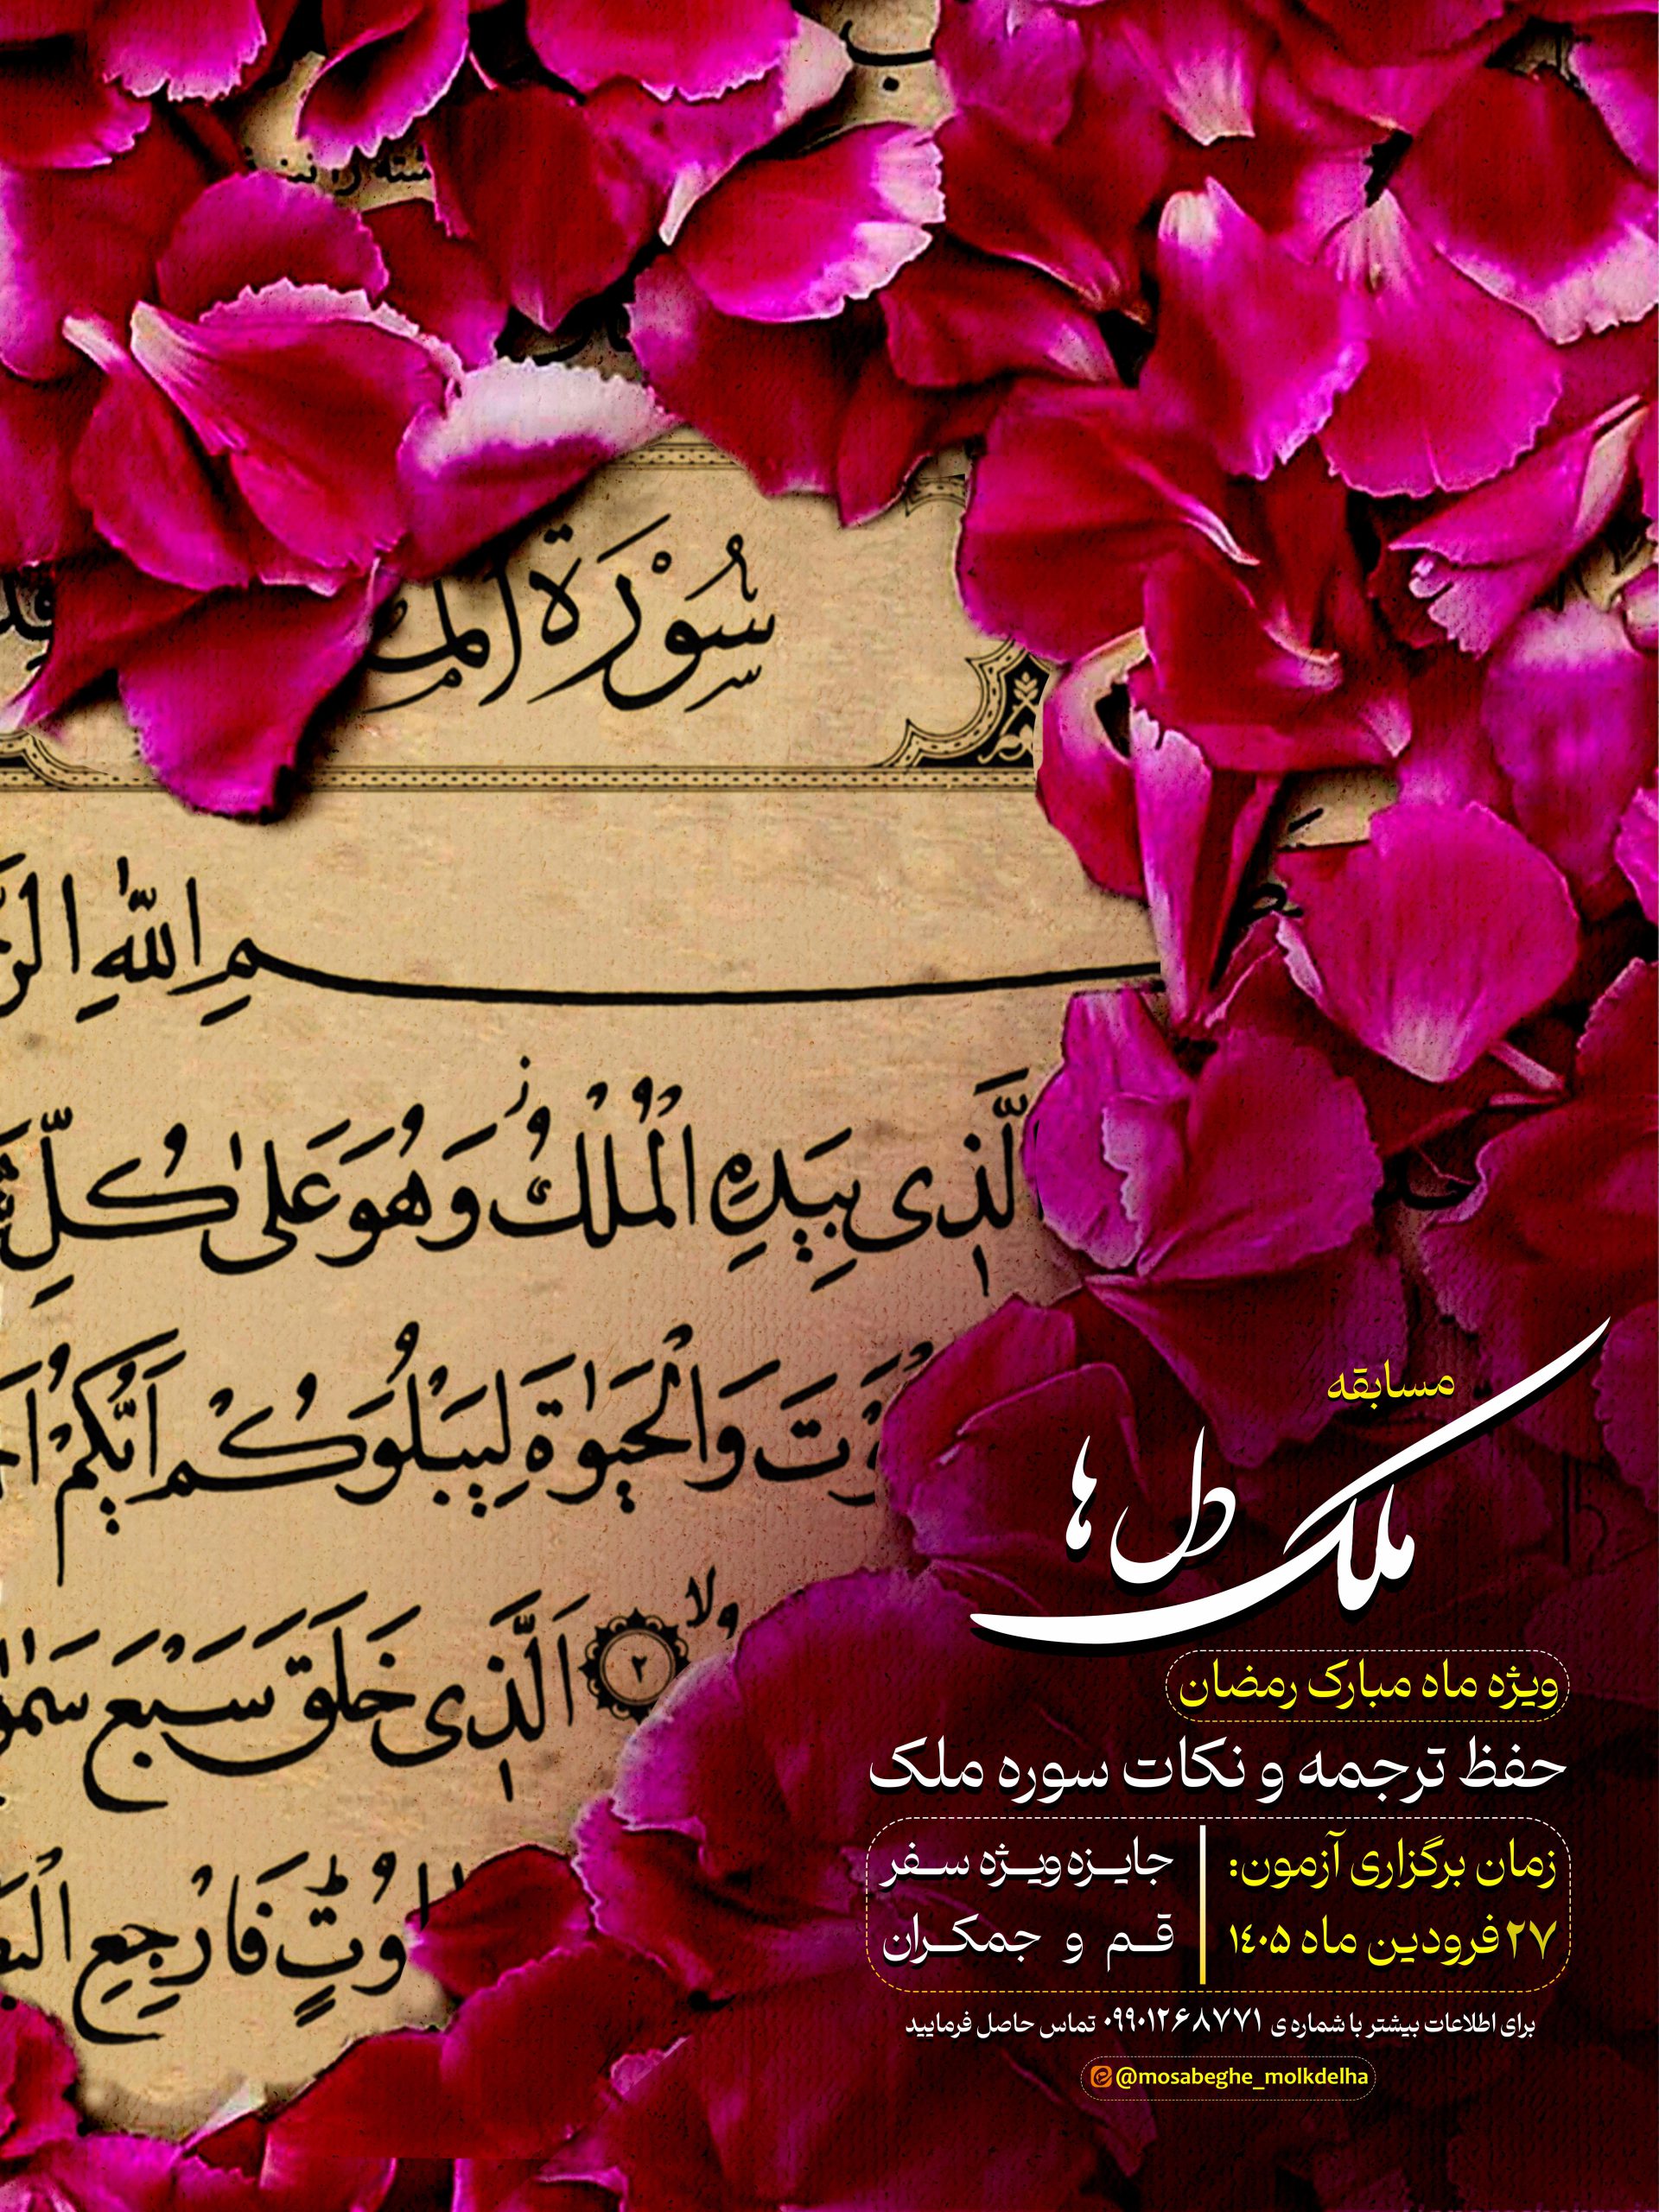 سُوْرَةُ
ـمِ اللّٰهِ
الَّذِی بِیَدِهِ الْمُلْكُ وَهُوَ عَلٰی كُلِّ
وَالْحَیٰوةَ لِیَبْلُوَكُمْ اَیُّكُمْ
۲ الَّذِی خَلَقَ سَبْعَ
فَارْجِعِ
مسابقه
ملک دل ها
ویژه ماه مبارک رمضان
حفظ ترجمه و نکات سوره ملک
زمان برگزاری آزمون:
۲۷ فرودین ماه ۱۴۰۵
جایـزه ویـژه سـفر
قـم و جمکـران
برای اطلاعات بیشتر با شماره ی ۰۹۹۰۱۲۶۸۷۷۱ تماس حاصل فرمایید
@mosabeghe_molkdelha